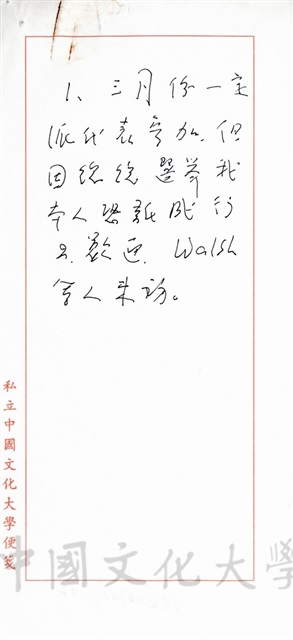 1、三月份一定
派代表參加,但
因總統選舉我
本人恐難成行
2、歡迎 Walsh
等人來訪。
私立中國文化大學便箋
中國文化大學